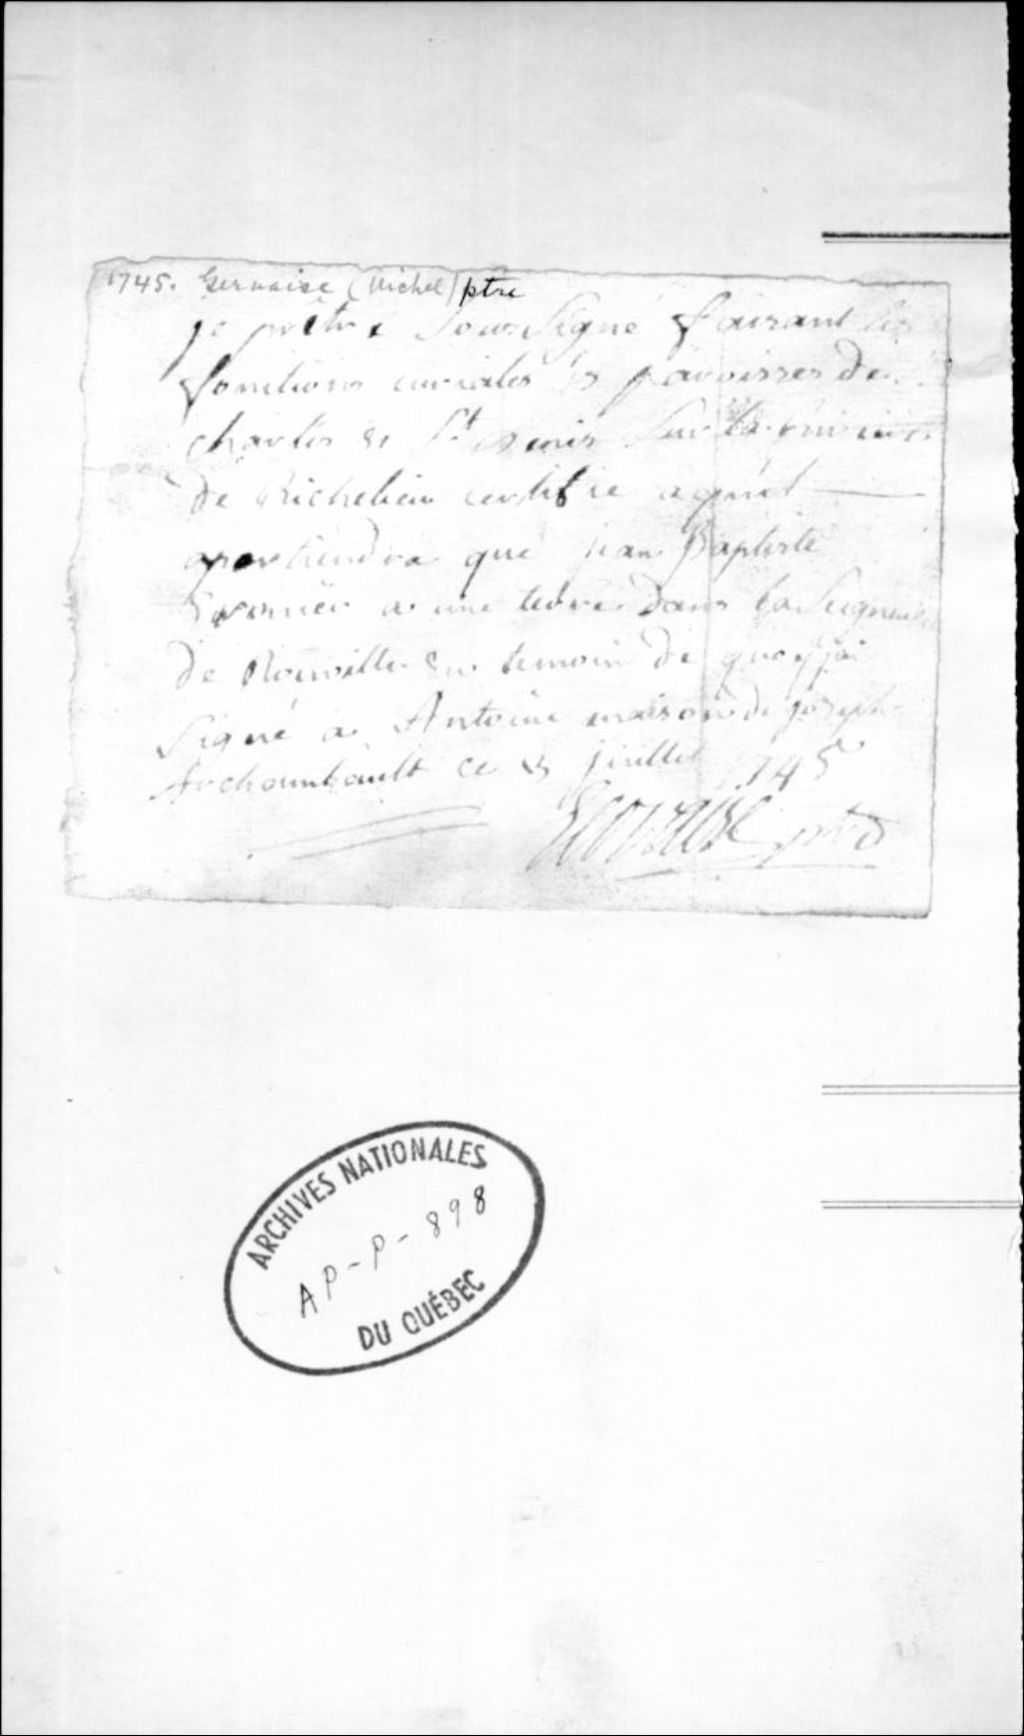 1745. Gervaise (Michel) ptre
je prêtre Sous Signé faisant les
fonctions curiales ès paroisses de
charles & St denis Sur la
de Richelieu certifie aquil
apartiendra que jean Baptiste
a une terre dans la Seigneurie
de Rouville En temoin de quoy j'ai
Signé a Antoine maison de joseph
Archambault ce juillet 1745
Gervaise ptre
ARCHIVES NATIONALES
AP-P-898
DU QUÉBEC